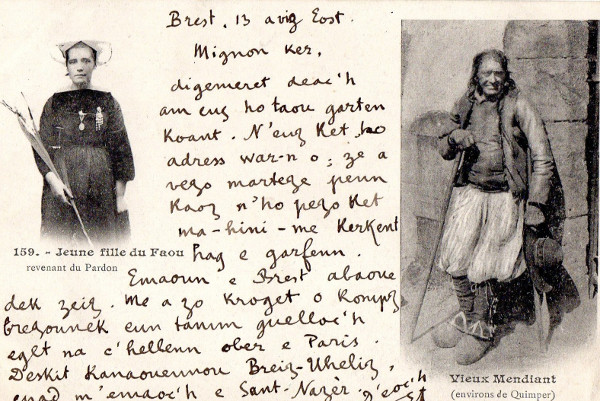 Brest, 13 a viz Eost.
Mignon ker,
digemeret deac'h
am euz ho taou garten
Koant. N'euz Ket ho
adress war-n o; ze a
vezo marteze penn
Kaoz n'ho pezo Ket
ma-hini-me Kerkent
hag e garfenn.
Emaoun e Brest abaoue
dek zeiz. Me a zo Kroget o Kompz
brezounek eun tamm guelloc'h
eget na c'hellenn ober e Paris.
Deskit Kanaouennou Breiz-Uheliz,
endd m'emaoc'h e Sant-Nazèr.
159. - Jeune fille du Faou
revenant du Pardon
Vieux Mendiant
(environs de Quimper)